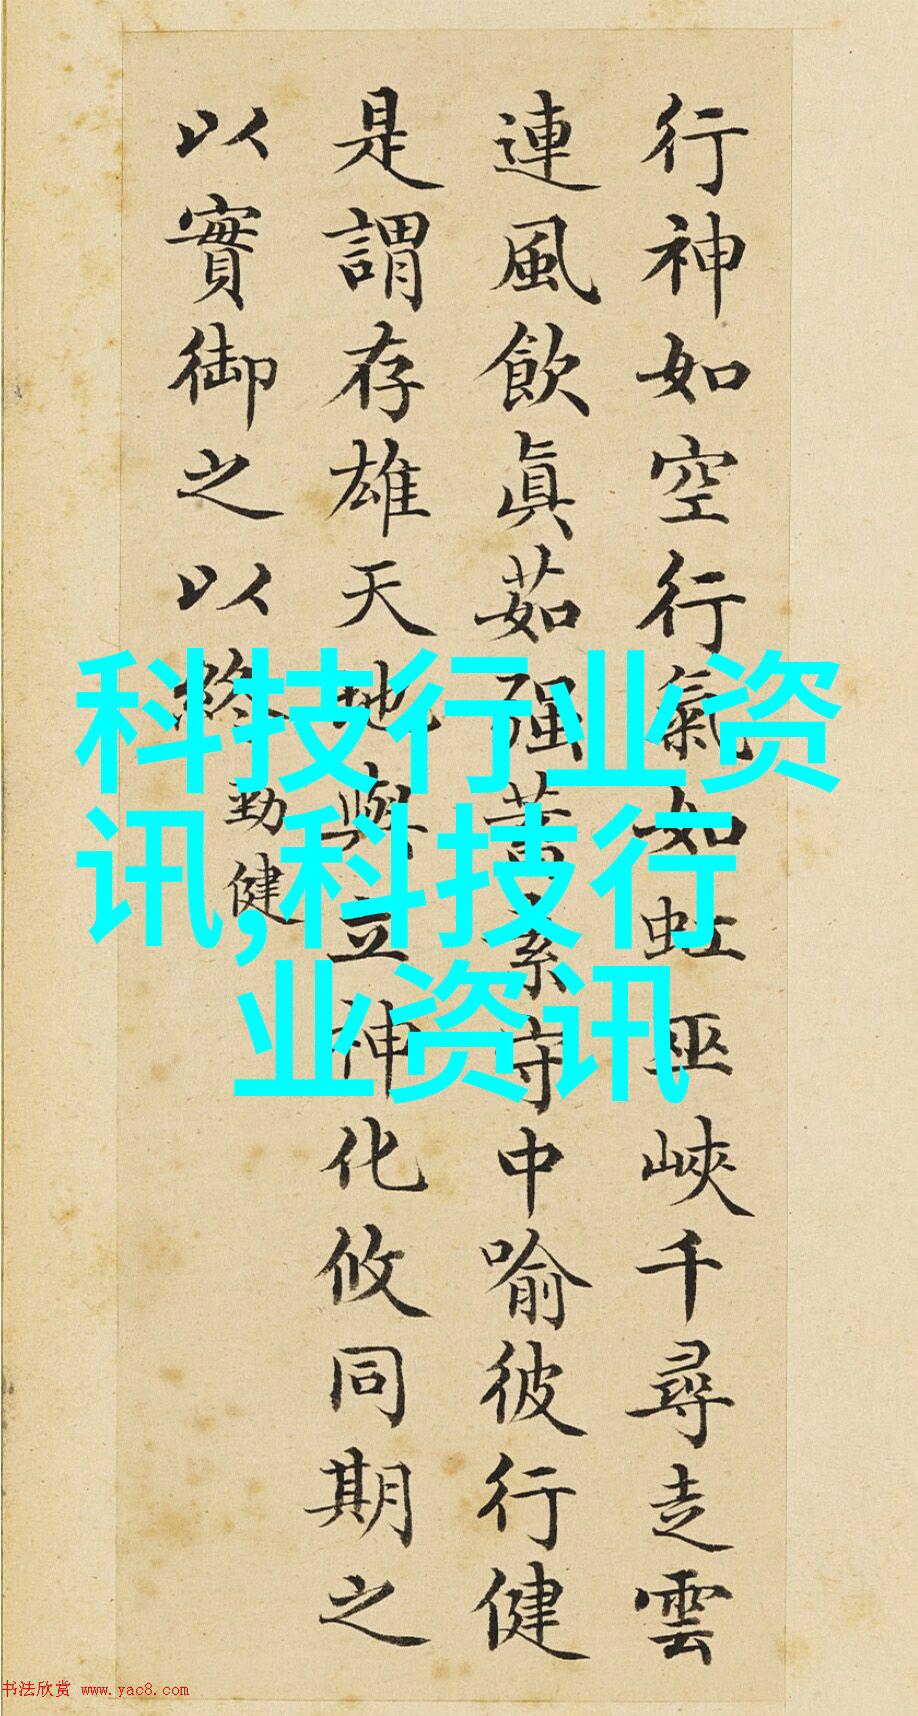 行神如空行氣如虹巫峽千尋走雲
連風飲眞茹强蓄素守中喻彼行健
是謂存雄天地與立神化攸同期之
以實御之以終
勁健
科技行业资
讯,科技行
业资讯
书法欣赏 www.yac8.com